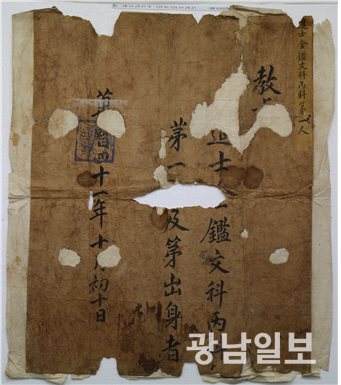 進士金鑑文科丙科第一人
教
士 鑑文科丙
第一 及第出身者
萬曆四十一年十月初十日
광남일보